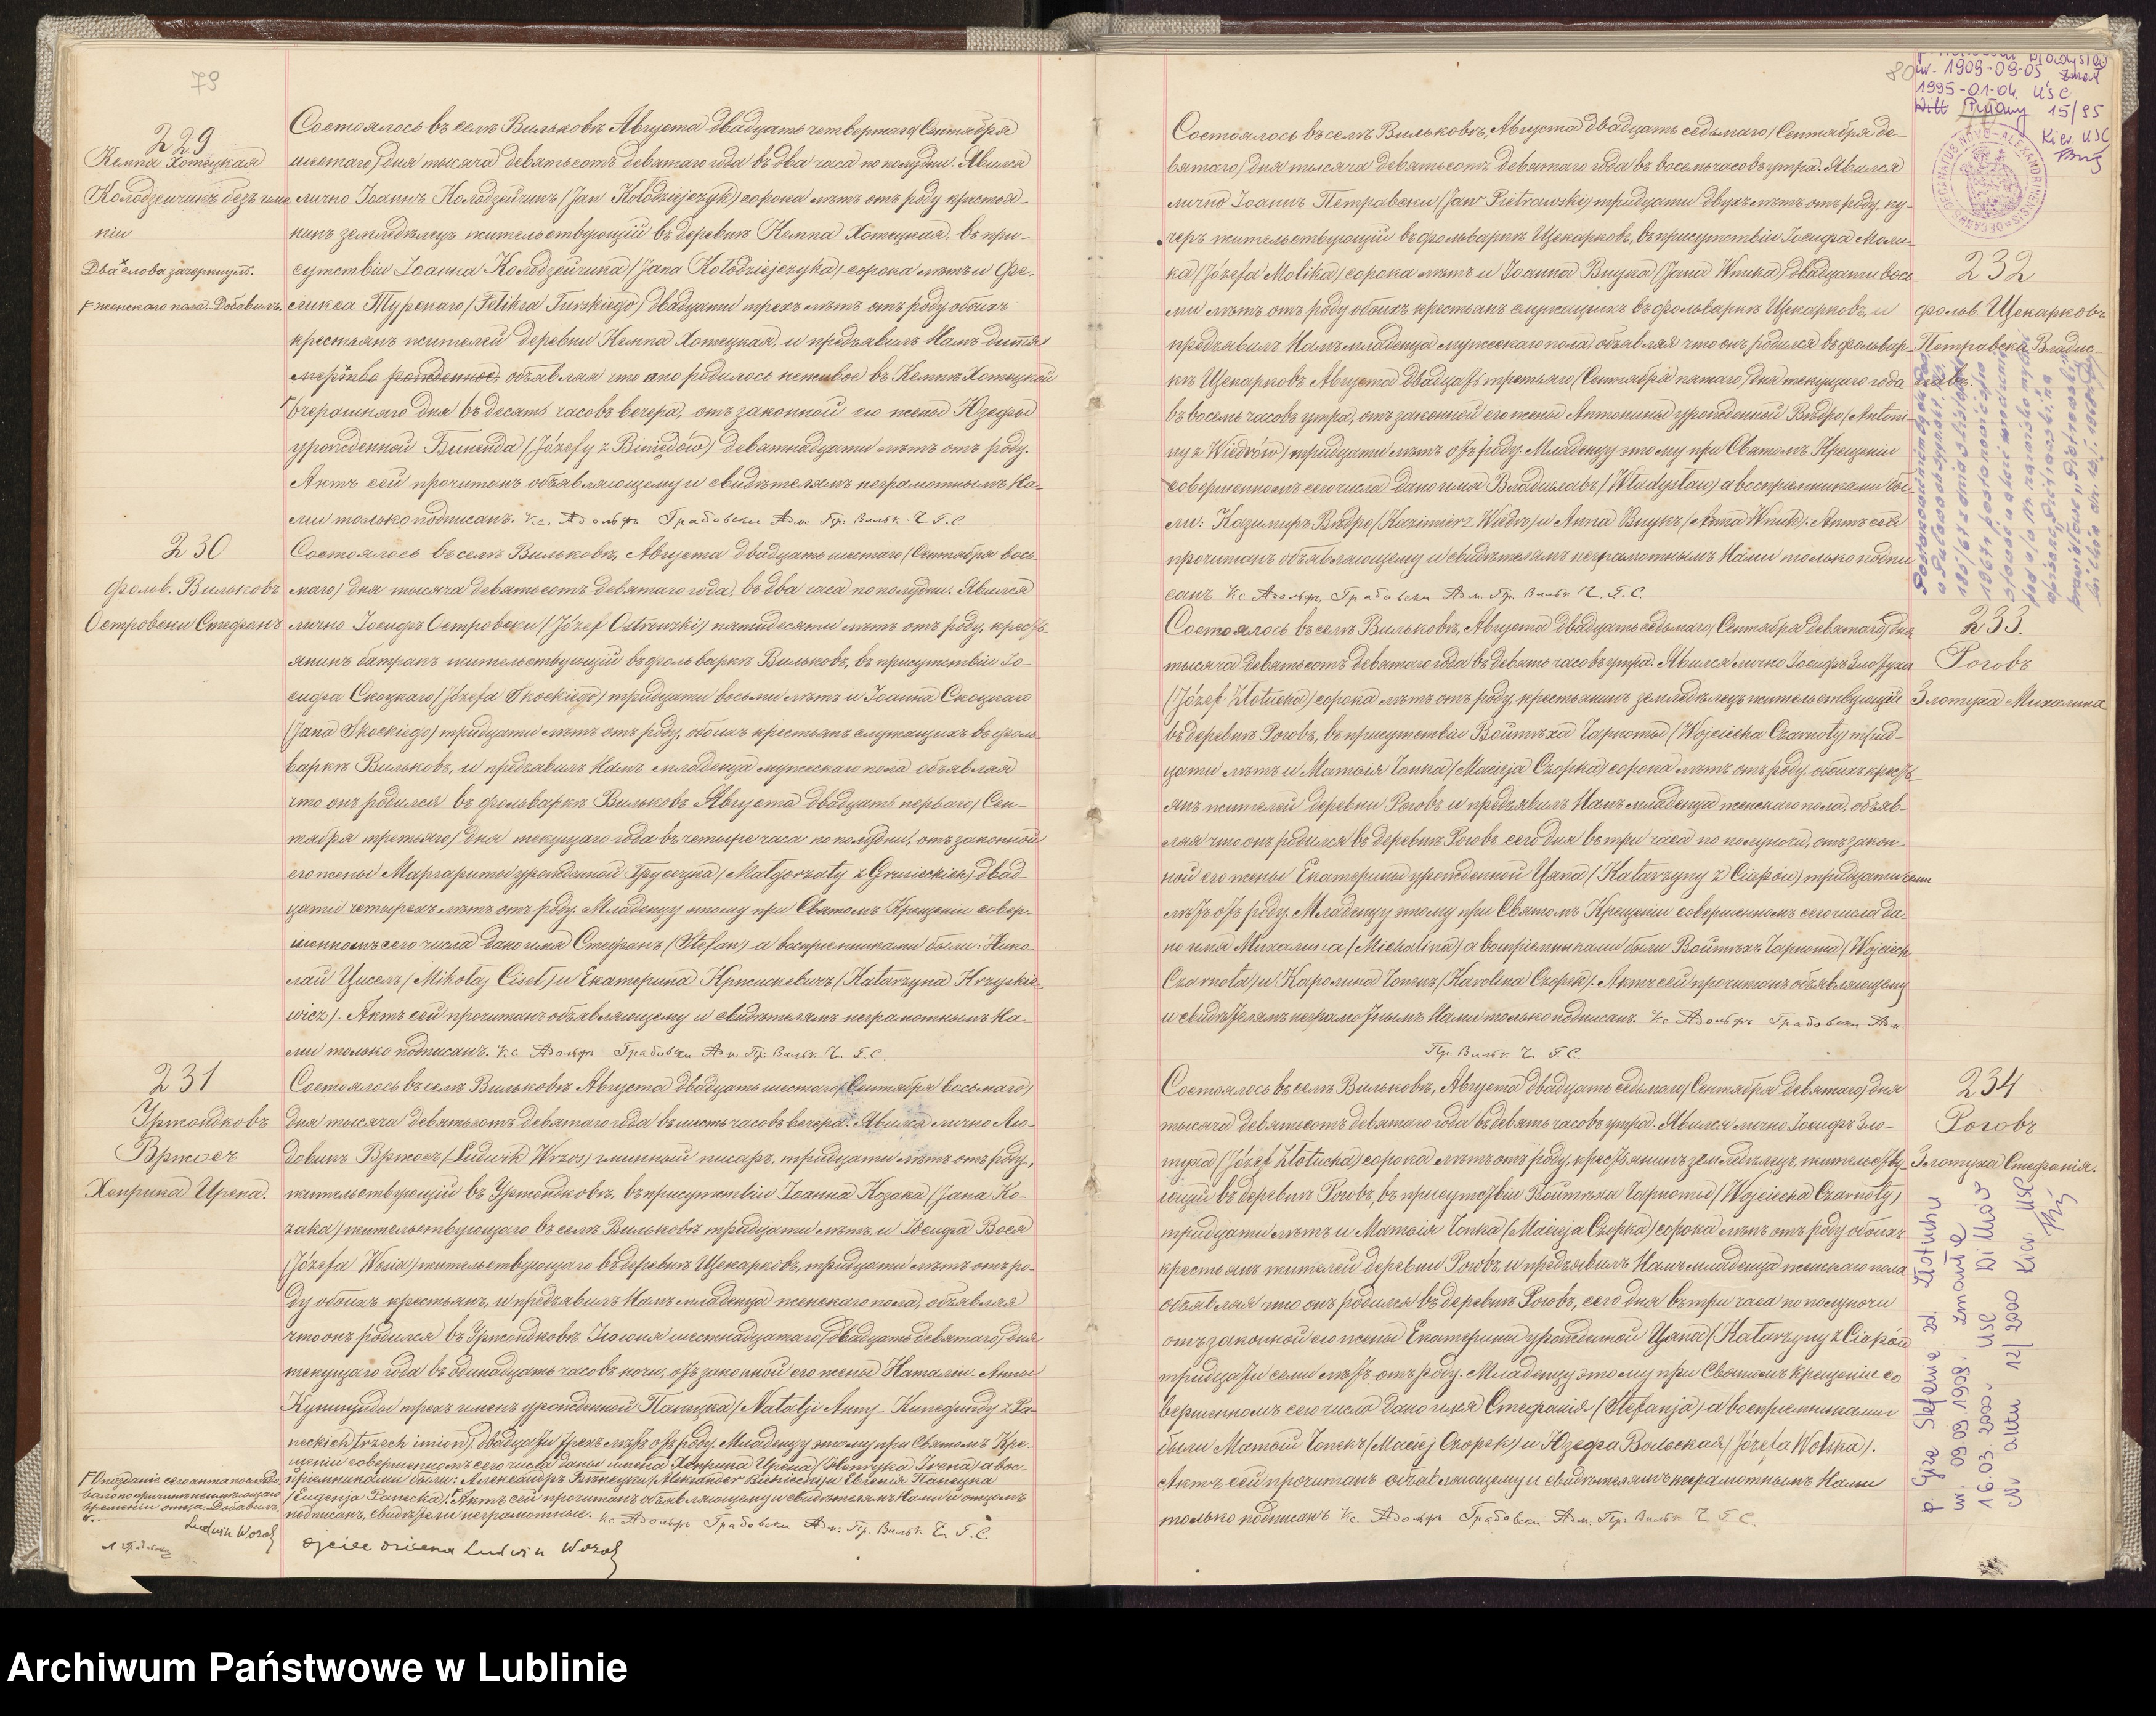 79
229
Кемпа Хотецкая
Колодзейчикъ безъ име
ніи
Два слова зачеркнуто.
женскаго пола. Добавилъ.
Состоялось въ селѣ Вильковѣ Августа двадцать четвертаго (Сентября
шестаго) дня тысяча девятьсотъ девятаго года въ два часа по полудни. Явился
лично Іоаннъ Колодзейчикъ (Jan Kołodziejczyk) сорока лѣтъ отъ роду крестья-
нинъ земледѣлецъ жительствующій въ деревнѣ Кемпа Хотецкая, въ при-
сутствіи Іоанна Колодзейчика (Jana Kołodziejczyka) сорока лѣтъ и Фе-
ликса Турскаго (Feliksa Turskiego) двадцати трехъ лѣтъ отъ роду обоихъ
крестьянъ жителей деревни Кемпа Хотецкая, и предъявилъ Намъ дитя
мертво рожденное, объявляя что оно родилось неживое въ Кемпѣ Хотецкой
вчерашняго дня въ десять часовъ вечера, отъ законной его жены Юзефы
урожденной Биненда (Józefy z Biniędów) девятнадцати лѣтъ отъ роду.
Актъ сей прочитанъ объявляющему и свидѣтелямъ неграмотнымъ На-
ми только подписанъ. Кс. Адольфъ Грабовски Адм. Пр. Вильк. Ч. Г. С.
230
Фольв. Вильковъ
Островски Стефанъ
Состоялось въ селѣ Вильковѣ, Августа двадцать шестаго (Сентября вось-
маго) дня тысяча девятьсотъ девятаго года, въ два часа по полудни. Явился
лично Іосифъ Островски (Józef Ostrowski) пятидесяти лѣтъ отъ роду, кресть-
янинъ батракъ жительствующій въ фольваркѣ Вильковъ, въ присутствіи Іо-
сифа Скоцкаго (Józefa Skockiego) тридцати восьми лѣтъ и Іоанна Скоцкаго
(Jana Skockiego) тридцати лѣтъ отъ роду, обоихъ крестьянъ служащихъ въ фоль-
варкѣ Вильковъ, и предъявилъ Намъ младенца мужескаго пола объявляя
что онъ родился въ фольваркѣ Вильковъ Августа двадцать перваго (Сен-
тября третьяго) дня текущаго года въ четыре часа по полудни, отъ законной
его жены Маргариты урожденной Грусецка (Małgorzaty z Grusieckich) двад-
цати четырехъ лѣтъ отъ роду. Младенцу этому при Святомъ Крещеніи совер-
шенномъ сего числа дано имя Стефанъ (Stefan) а воспріемниками были: Нико-
лай Цисель (Mikołaj Cisel) и Екатерина Крисикевичъ (Katarzyna Krzyskie-
wicz). Актъ сей прочитанъ объявляющему и свидѣтелямъ неграмотнымъ На-
ми только подписанъ. Кс. Адольфъ Грабовски Адм. Пр. Вильк. Ч. Г. С.
231
Уржондковъ
Вржосъ
Хенрика Ирена.
Состоялось въ селѣ Вильковѣ Августа двадцать шестаго (Сентября восьмаго)
дня тысяча девятьсотъ девятаго года въ шесть часовъ вечера. Явился лично Лю-
довикъ Вржосъ (Ludwik Wrzos) гминный писарь, тридцати лѣтъ отъ роду,
жительствующій въ Уржондковѣ, въ присутствіи Іоанна Козака (Jana Ko-
zaka) жительствующаго въ селѣ Вильковѣ тридцати лѣтъ, и Іосифа Вося
(Józefa Wosia) жительствующаго въ деревнѣ Щекарковъ, тридцати лѣтъ отъ ро-
ду обоихъ крестьянъ, и предъявилъ Намъ младенца женскаго пола, объявляя
что онъ родился въ Уржондковѣ Іюня шестнадцатаго (двадцать девятаго) дня
текущаго года въ одинадцать часовъ ночи, отъ законной его жены Наталіи-Анны
Кунигунды трехъ именъ урожденной Панецка (Natalji Anny-Kunegundy z Pa-
neckich trzech imion), двадцати трехъ лѣтъ отъ роду. Младенцу этому при Святомъ Кре-
щеніи совершенномъ сего числа даны имена Хенрика Ирена (Henryka Irena) а вос-
пріемниками были: Александръ Бѣнецки (Aleksander Bieniecki) и Евгенія Панецка
(Eugenja Panecka). Актъ сей прочитанъ объявляющему и свидѣтелямъ Нами и отцомъ
подписанъ, свидѣтели неграмотные. Кс. Адольфъ Грабовски Адм. Пр. Вильк. Ч. Г. С.
Опозданіе сего акта послѣдо-
вало по причинѣ неимѣющаго
времени отца. Добавилъ
Ludwik Wrzos
ojciec dziecka Ludwik Wrzos
80
ur. 1909-09-05, zmarł
1995-01-04. USC
Puławy 15/95
Kier. USC
Состоялось въ селѣ Вильковѣ, Августа двадцать седьмаго (Сентября де-
вятаго) дня тысяча девятьсотъ девятаго года въ восемь часовъ утра. Явился
лично Іоаннъ Петравски (Jan Pietrawski) тридцати двухъ лѣтъ отъ роду, ку-
черъ жительствующій въ фольваркѣ Щекарковъ, въ присутствіи Іосифа Моли-
ка (Józefa Molika) сорока лѣтъ и Іоанна Внука (Jana Wnuka) двадцати вось-
ми лѣтъ отъ роду обоихъ крестьянъ служащихъ въ фольваркѣ Щекарковъ, и
предъявилъ Намъ младенца мужескаго пола, объявляя что онъ родился въ фольвар-
кѣ Щекарковъ Августа двадцать третьяго (Сентября пятаго) дня текущаго года
въ восемь часовъ утра, отъ законной его жены Антонины урожденной Вѣдро (Antoni-
ny z Wiedrów) тридцати лѣтъ отъ роду. Младенцу этому при Святомъ Крещеніи
совершенномъ сего числа дано имя Владиславъ (Władysław) а воспріемниками бы-
ли: Казимиръ Вѣдро (Kazimierz Wiedro) и Анна Внукъ (Anna Wnuk). Актъ сей
прочитанъ объявляющему и свидѣтелямъ неграмотнымъ Нами только подпи-
санъ. Кс. Адольфъ Грабовски Адм. Пр. Вильк. Ч. Г. С.
232
фольв. Щекарковъ
Петравски Владис-
лавъ.
Состоялось въ селѣ Вильковѣ, Августа двадцать седьмаго (Сентября девятаго) дня
тысяча девятьсотъ девятаго года въ девять часовъ утра. Явился лично Іосифъ Злотуха
(Józef Złotucha) сорока лѣтъ отъ роду, крестьянинъ земледѣлецъ жительствующій
въ деревнѣ Роговъ, въ присутствіи Войтѣха Чарноты (Wojciecha Czarnoty) трид-
цати лѣтъ и Матвѣя Чопка (Macieja Czopka) сорока лѣтъ отъ роду, обоихъ кресть-
янъ жителей деревни Роговъ и предъявилъ Намъ младенца женскаго пола, объяв-
ляя что онъ родился въ деревнѣ Роговъ сего дня въ три часа по полуночи, отъ закон-
ной его жены Екатерины урожденной Цяпа (Katarzyny z Ciapów) тридцати семи
лѣтъ отъ роду. Младенцу этому при Святомъ Крещеніи совершенномъ сего числа да-
но имя Михалина (Michalina) а воспріемниками были Войтѣхъ Чарнота (Wojciech
Czarnota) и Каролина Чопекъ (Karolina Czopek). Актъ сей прочитанъ объявляющему
и свидѣтелямъ неграмотнымъ Нами только подписанъ. Кс. Адольфъ Грабовски Адм.
Пр. Вильк. Ч. Г. С.
233.
Роговъ
Злотуха Михалина
Состоялось въ селѣ Вильковѣ, Августа двадцать седьмаго (Сентября девятаго) дня
тысяча девятьсотъ девятаго года въ девять часовъ утра. Явился лично Іосифъ Зло-
туха (Józef Złotucha) сорока лѣтъ отъ роду, крестьянинъ земледѣлецъ, жительству-
ющій въ деревнѣ Роговъ, въ присутствіи Войтѣха Чарноты (Wojciecha Czarnoty)
тридцати лѣтъ и Матвѣя Чопка (Macieja Czopka) сорока лѣтъ отъ роду обоихъ
крестьянъ жителей деревни Роговъ и предъявилъ Намъ младенца женскаго пола
объявляя что онъ родился въ деревнѣ Роговъ, сего дня въ три часа по полуночи
отъ законной его жены Екатерины урожденной Цяпа (Katarzyny z Ciapów)
тридцати семи лѣтъ отъ роду. Младенцу этому при Святомъ Крещеніи со
вершенномъ сего числа дано имя Стефанія (Stefanja) а воспріемниками
были Матвѣй Чопекъ (Maciej Czopek) и Юзефа Вольская (Józefa Wolska).
Актъ сей прочитанъ объявляющему и свидѣтелямъ неграмотнымъ Нами
только подписанъ Кс. Адольфъ Грабовски Адм. Пр. Вильк. Ч. Г. С.
234
Роговъ
Злотуха Стефанія.
Stefania zd. Złotucha
ur. 09.09.1909. zmarła
16.03.2000. USC
Nr aktu 12/2000 Kier. USC
Archiwum Państwowe w Lublinie